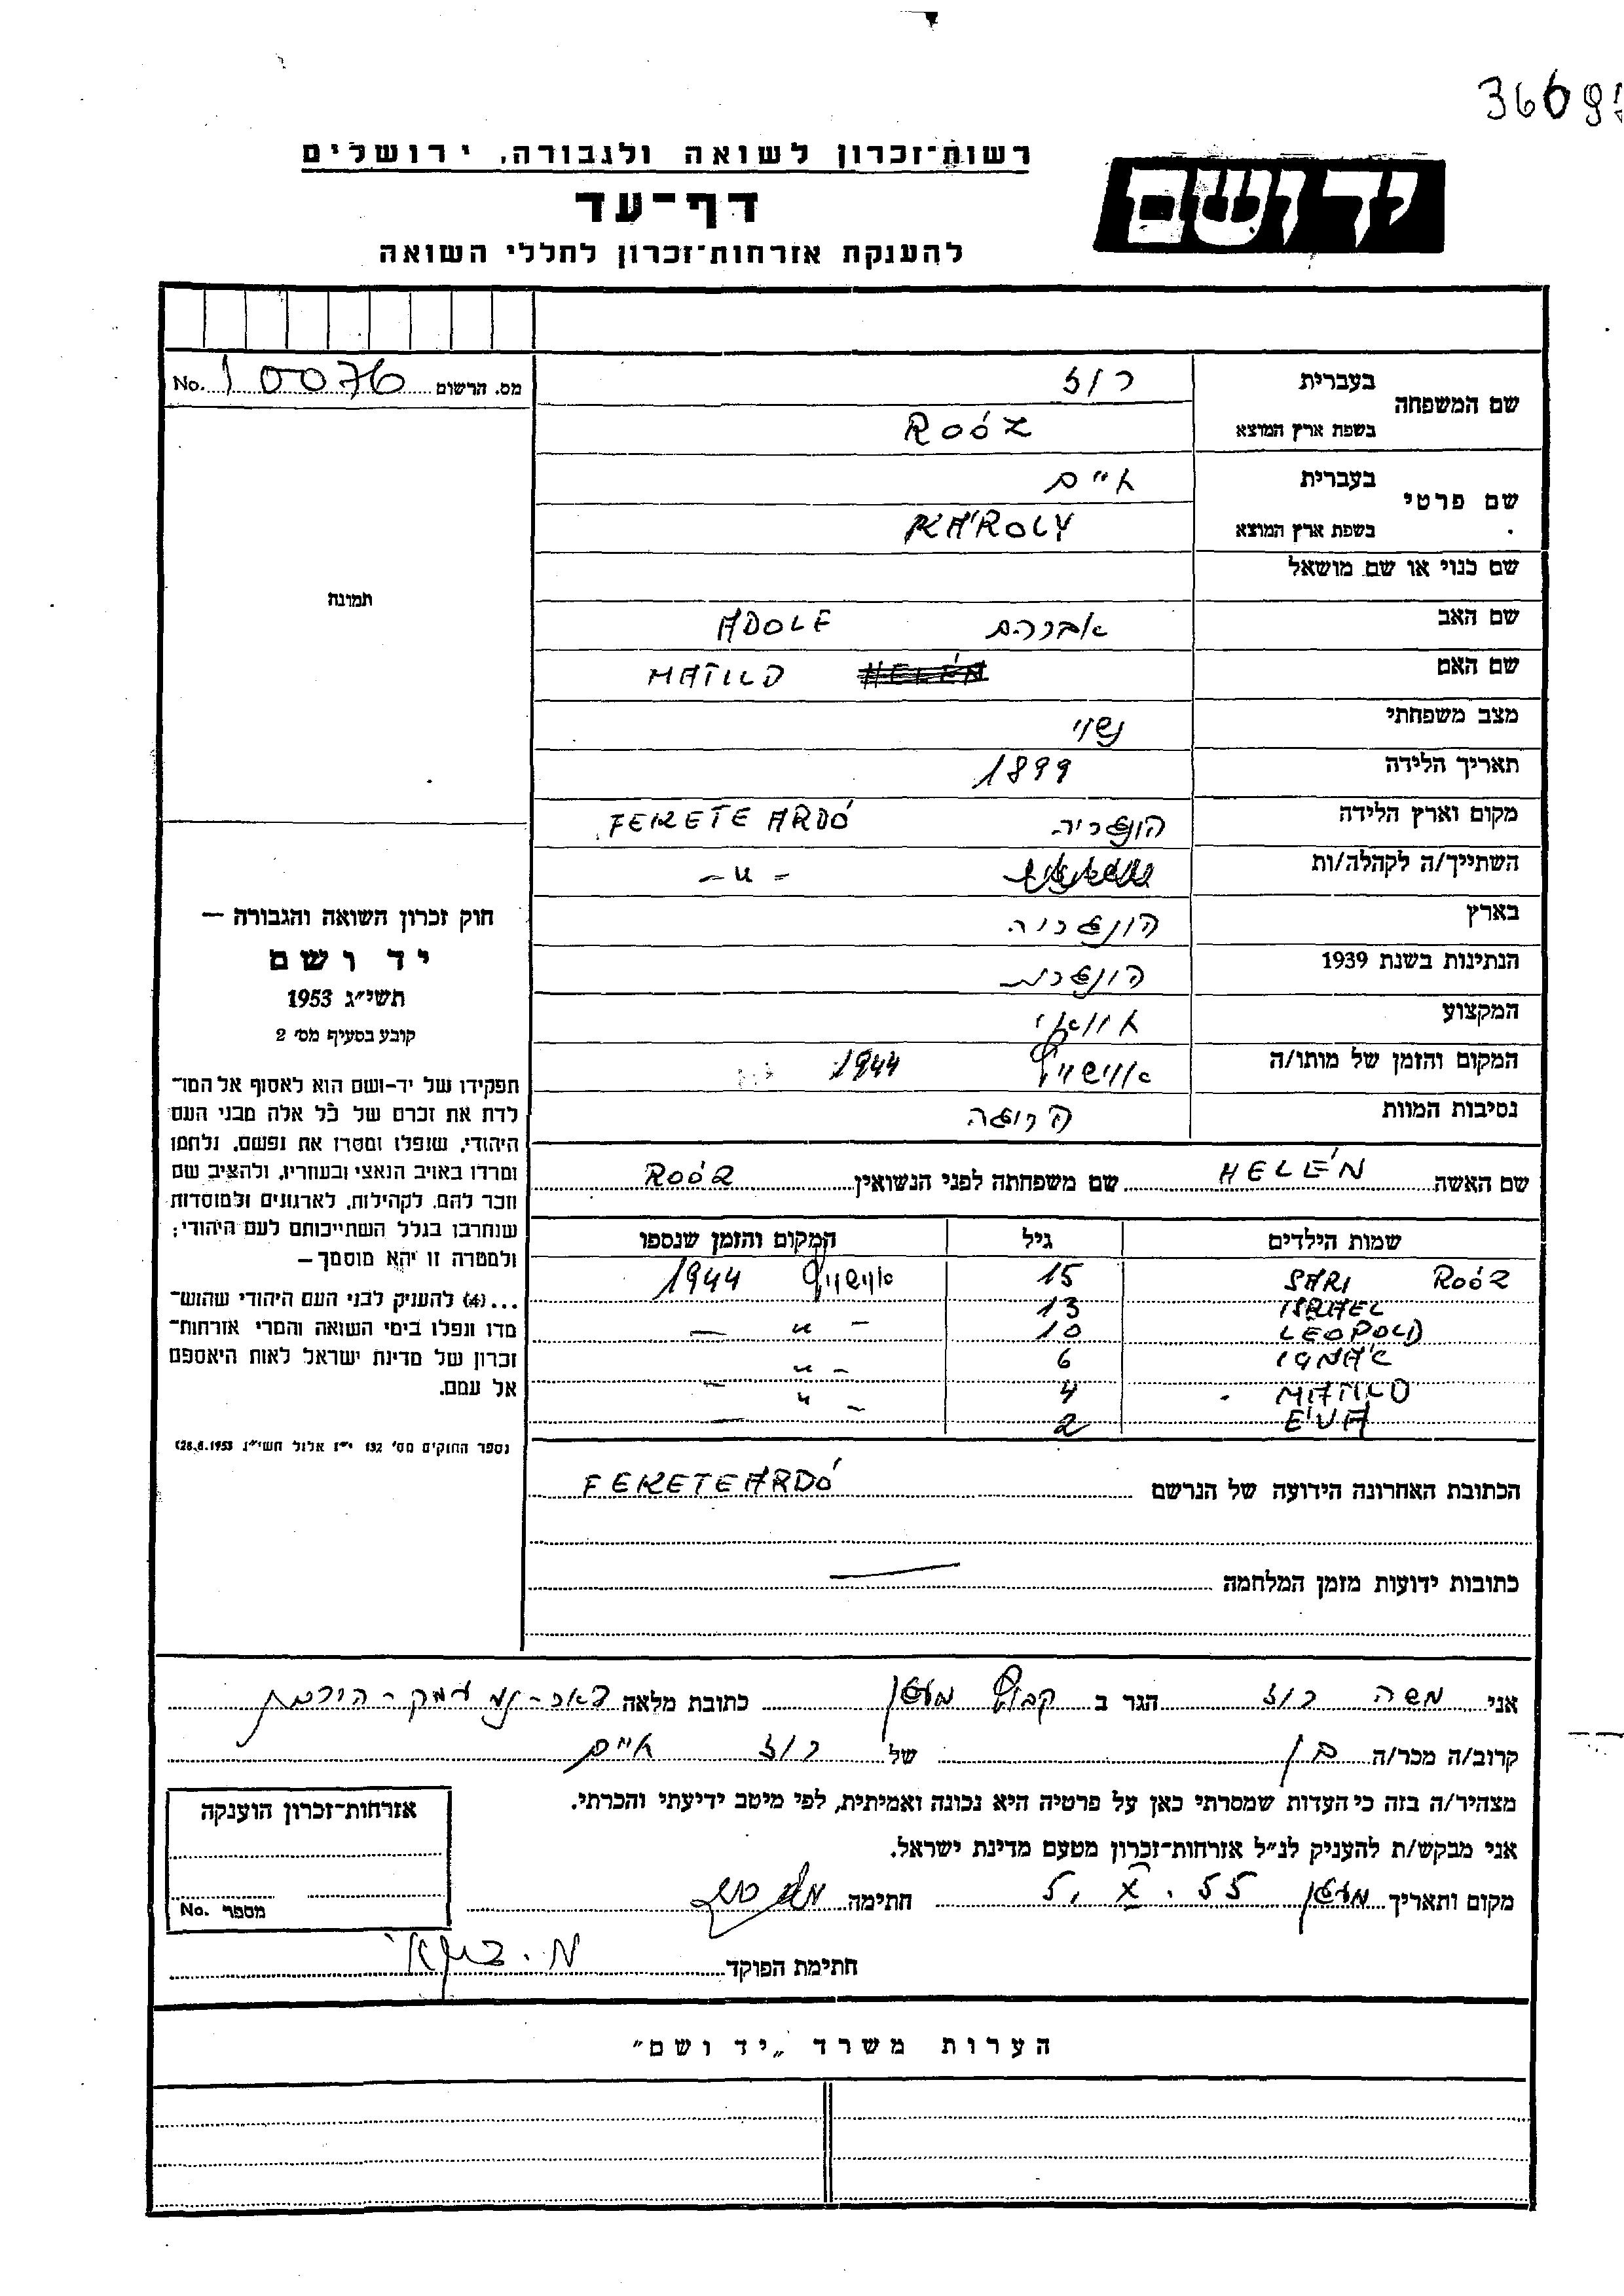 3669
רשות־זכרון לשואה ולגבורה, ירושלים
ידושם
דף־עד
להענקת אזרחות־זכרון לחללי השואה
מס. הרשום 10076 No.
שם המשפחה בעברית רוז
בשפת ארץ המוצא ROÓZ
שם פרטי בעברית חיים
בשפת ארץ המוצא KÁROLY
שם כנוי או שם מושאל
שם האב אברהם ADOLF
שם האם MATILD
מצב משפחתי נשוי
תאריך הלידה 1899
מקום וארץ הלידה הונגריה FEKETE ARDÓ
השתייך/ה לקהלה/ות – " –
בארץ הונגריה
הנתינות בשנת 1939 הונגרית
המקצוע
המקום והזמן של מותו/ה אושויץ 1944
נסיבות המוות
תמונה
חוק זכרון השואה והגבורה —
יד ושם
תשי״ג 1953
קובע בסעיף מס׳ 2
תפקידו של יד-ושם הוא לאסוף אל המו־
לדת את זכרם של כל אלה מבני העם
היהודי, שנפלו ומסרו את נפשם, נלחמו
ומרדו באויב הנאצי ובעוזריו, ולהציב שם
וזכר להם, לקהילות, לארגונים ולמוסדות
שנחרבו בגלל השתייכותם לעם היהודי;
ולמטרה זו יהא מוסמך —
...(4) להעניק לבני העם היהודי שהוש־
מדו ונפלו בימי השואה והמרי אזרחות־
זכרון של מדינת ישראל לאות היאספם
אל עמם.
(ספר החוקים מס׳ 132 י״ז אלול תשי״ג 28.8.1953)
שם האשה HELÉN שם משפחתה לפני הנשואין ROÓZ
שמות הילדים גיל המקום והזמן שנספו
ROÓZ SÁRI 15 אושויץ 1944
ISRAEL 13
LEOPOLD 10 – " –
IGNÁC 6 – "
MATILD 4 " –
ÉVA 2 – –
הכתובת האחרונה הידועה של הנרשם FEKETEARDÓ
כתובות ידועות מזמן המלחמה —
אני משה רוז הגר ב קבוץ מעגן כתובת מלאה דאר-נע עמק-הירדן
קרוב/ה מכר/ה בן של רוז חיים
מצהיר/ה בזה כי העדות שמסרתי כאן על פרטיה היא נכונה ואמיתית, לפי מיטב ידיעתי והכרתי.
אני מבקש/ת להעניק לנ״ל אזרחות־זכרון מטעם מדינת ישראל.
מקום ותאריך מעגן 5. X. 55 חתימה
חתימת הפוקד
אזרחות־זכרון הוענקה
מספר No.
הערות משרד „יד ושם״